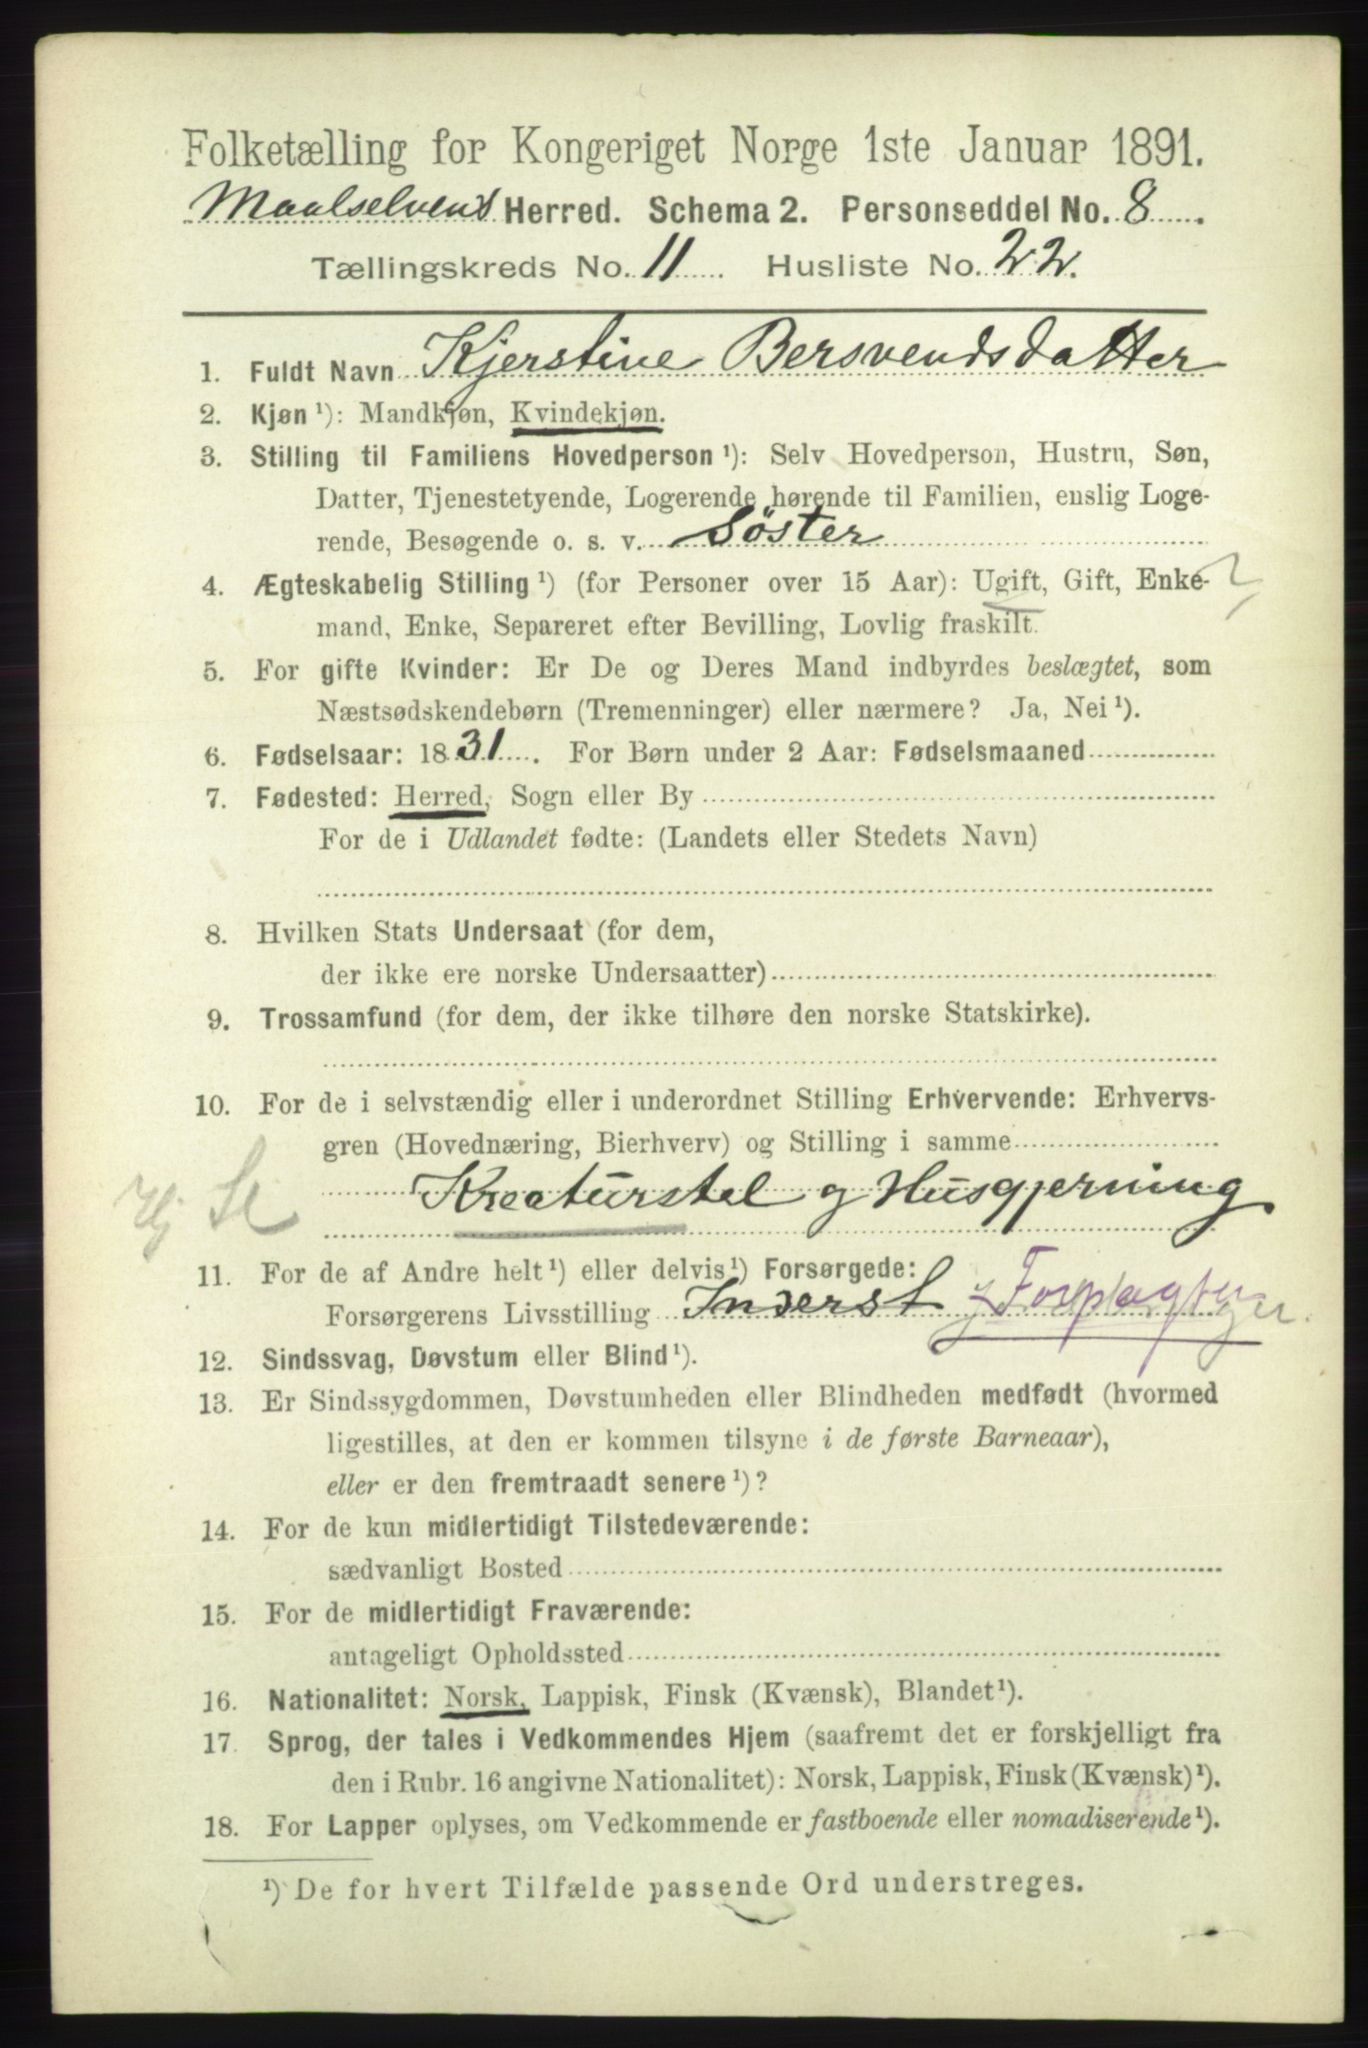 Folketælling for Kongeriget Norge 1ste Januar 1891.
Maalselvens Herred. Schema 2. Personseddel No. 8
Tællingskreds No. 11 Husliste No. 22.
1. Fuldt Navn Kjerstine Bersvendsdatter
2. Kjøn ¹): Mandkjøn, Kvindekjøn.
3. Stilling til Familiens Hovedperson ¹): Selv Hovedperson, Hustru, Søn,
Datter, Tjenestetyende, Logerende hørende til Familien, enslig Loge-
rende, Besøgende o. s. v. Söster
4. Ægteskabelig Stilling ¹) (for Personer over 15 Aar): Ugift, Gift, Enke- ?
mand, Enke, Separeret efter Bevilling, Lovlig fraskilt.
5. For gifte Kvinder: Er De og Deres Mand indbyrdes beslægtet, som
Næstsødskendebørn (Tremenninger) eller nærmere? Ja, Nei ¹).
6. Fødselsaar: 1831. For Børn under 2 Aar: Fødselsmaaned
7. Fødested: Herred, Sogn eller By
For de i Udlandet fødte: (Landets eller Stedets Navn)
8. Hvilken Stats Undersaat (for dem,
der ikke ere norske Undersaatter)
9. Trossamfund (for dem, der ikke tilhøre den norske Statskirke).
10. For de i selvstændig eller i underordnet Stilling Erhvervende: Erhvervs-
gren (Hovednæring, Bierhverv) og Stilling i samme
Kreaturstel og Husgjerning
11. For de af Andre helt ¹) eller delvis ¹) Forsørgede:
Forsørgerens Livsstilling Inderst Forpagter
12. Sindssvag, Døvstum eller Blind ¹).
13. Er Sindssygdommen, Døvstumheden eller Blindheden medfødt (hvormed
ligestilles, at den er kommen tilsyne i de første Barneaar),
eller er den fremtraadt senere ¹)?
14. For de kun midlertidigt Tilstedeværende:
sædvanligt Bosted
15. For de midlertidigt Fraværende:
antageligt Opholdssted
16. Nationalitet: Norsk, Lappisk, Finsk (Kvænsk), Blandet ¹).
17. Sprog, der tales i Vedkommendes Hjem (saafremt det er forskjelligt fra
den i Rubr. 16 angivne Nationalitet): Norsk, Lappisk, Finsk (Kvænsk) ¹).
18. For Lapper oplyses, om Vedkommende er fastboende eller nomadiserende ¹).
¹) De for hvert Tilfælde passende Ord understreges.